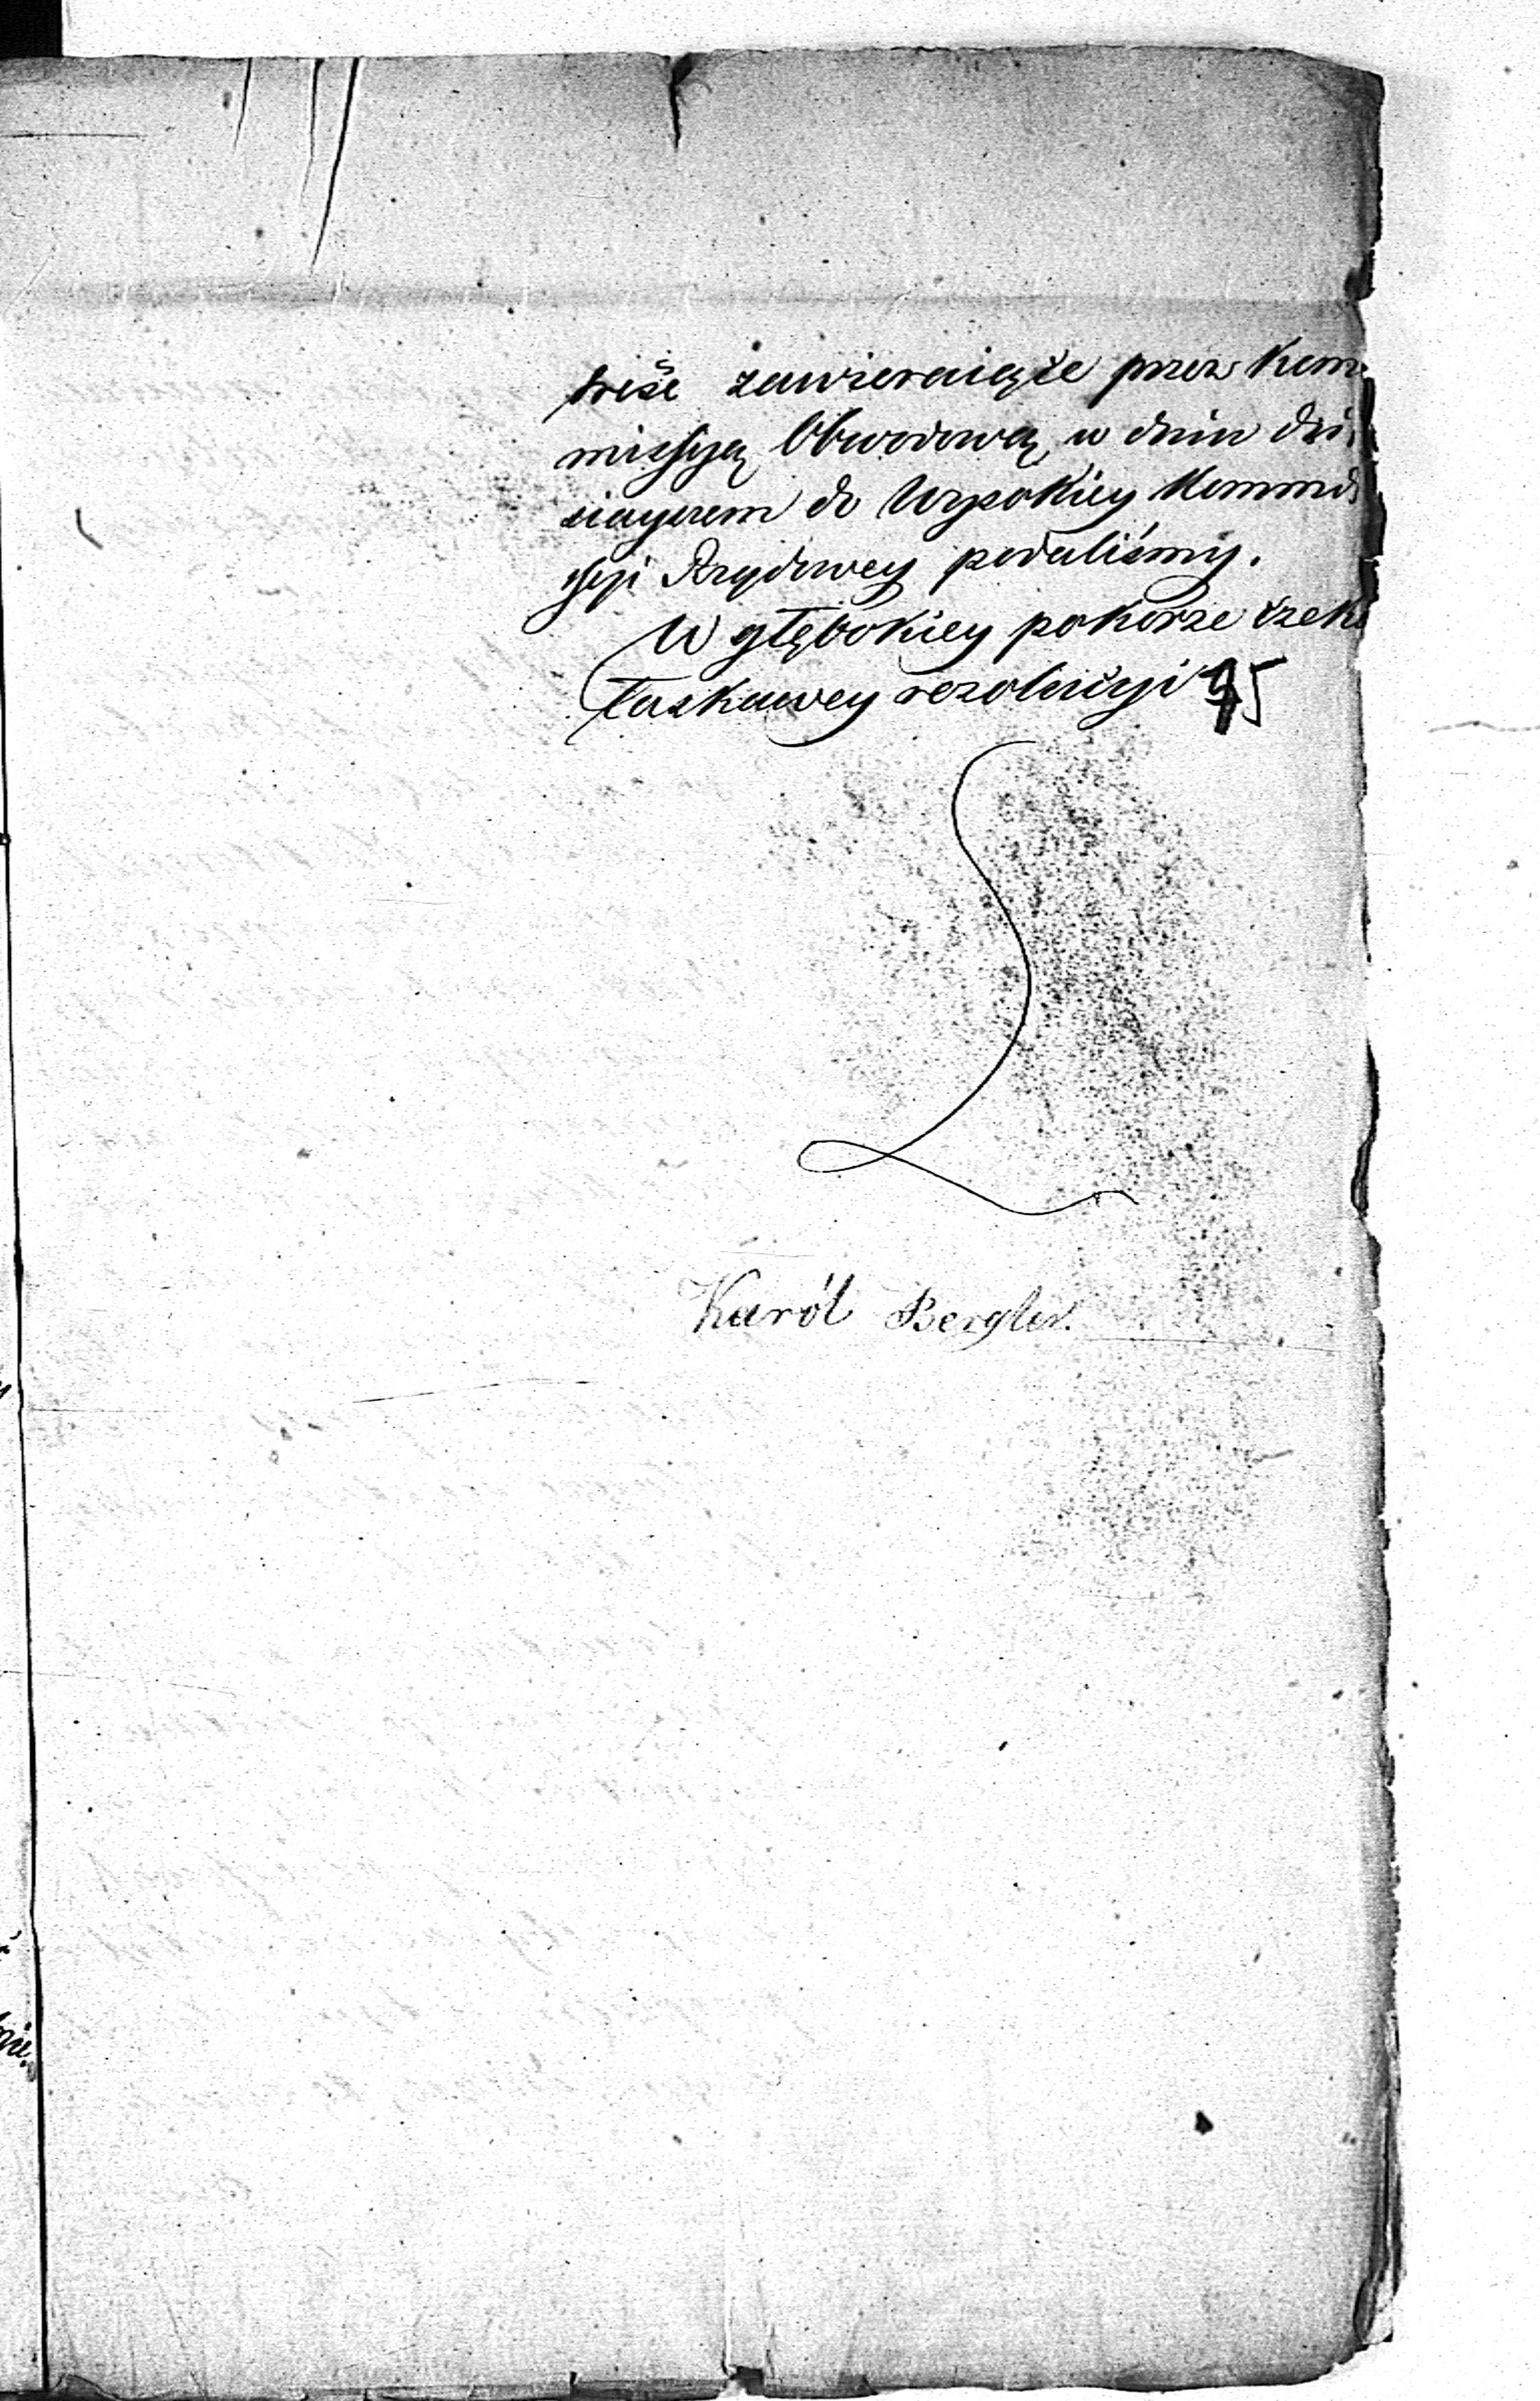 treść zawieraiące przez Kom
missyą Obwodową w dniu dzi
sieyszem do Wysokiey Kommis
syi Rządowey podaliśmy.
W głębokiey pokorze czek
łaskawey rezolucyi
Karól Bergler.